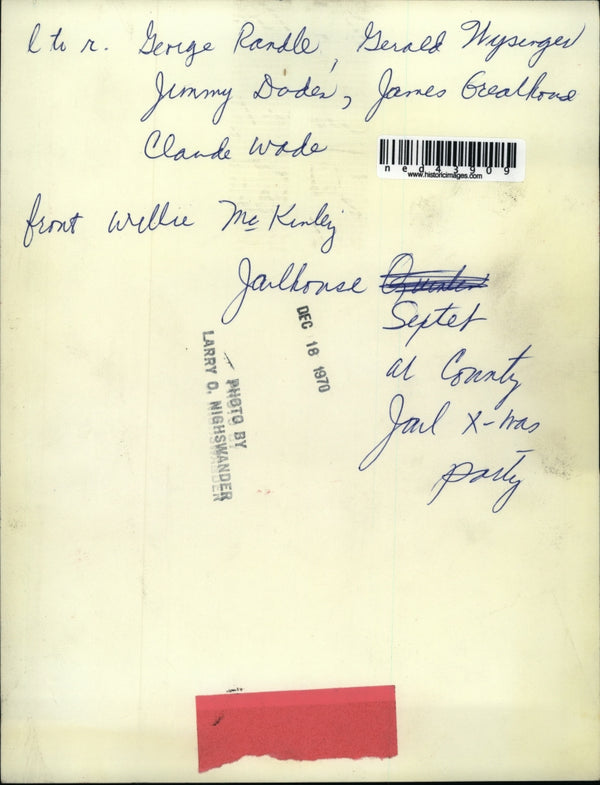 l to r. George Randle, Gerald Wysinger
Jimmy Doder, James Grealhouse
Claude Wade
ned43909
www.historicimages.com
front Willie McKinley
Jailhouse
Septet
at County
Jail X-mas
party
DEC 18 1970
PHOTO BY
LARRY O. NIGHSWANDER